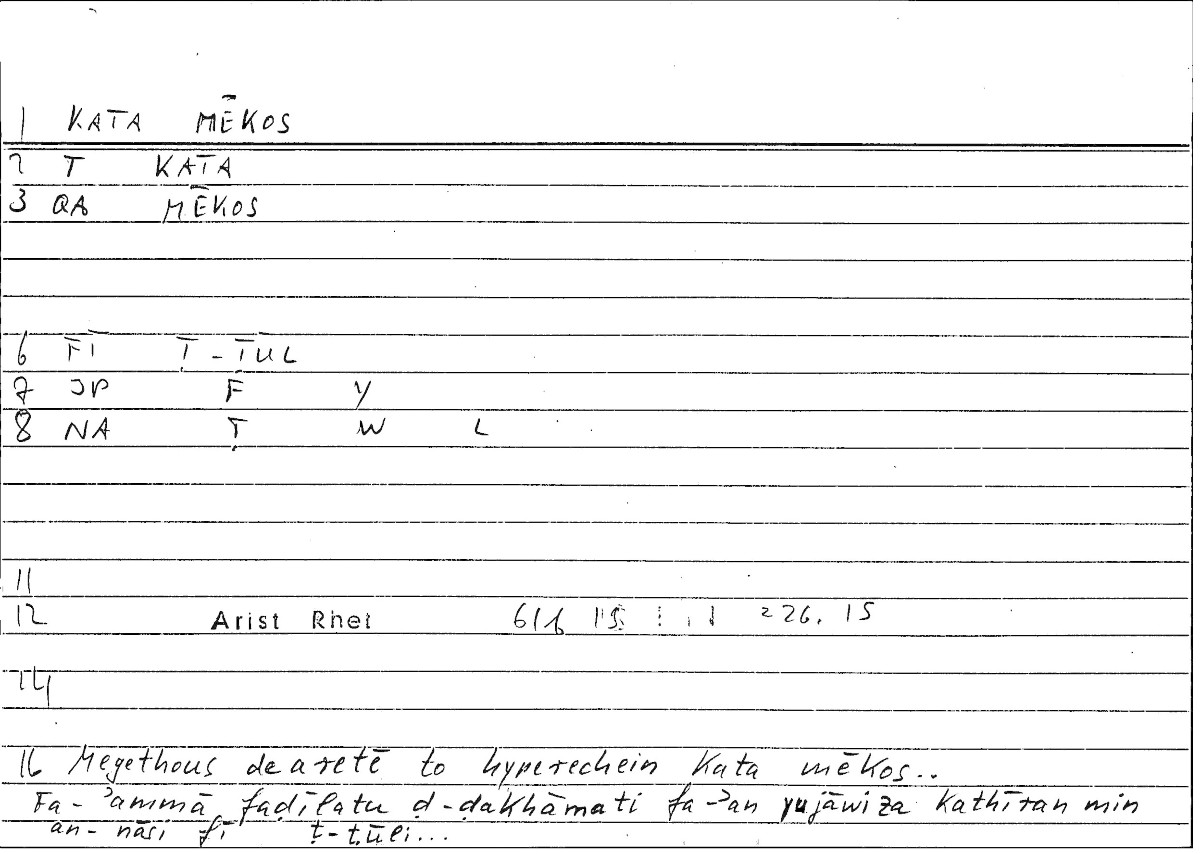 1 KATA MĒKOS
2 T KATA
3 QA MĒKOS
6 FĪ Ṭ-ṬŪL
7 JP F Y
8 NA Ṭ W L
11
12 Arist Rhet 616 15 226,15
14
16 Megethous de aretē to hyperechein kata mēkos..
Fa-ʾammā faḍīlatu ḍ-ḍakhāmati fa-ʾan yujāwiza kathīran min
an-nāsi fī ṭ-ṭūli...